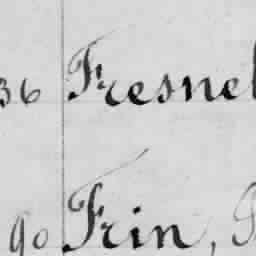 36 Fresnel
90 Frin,